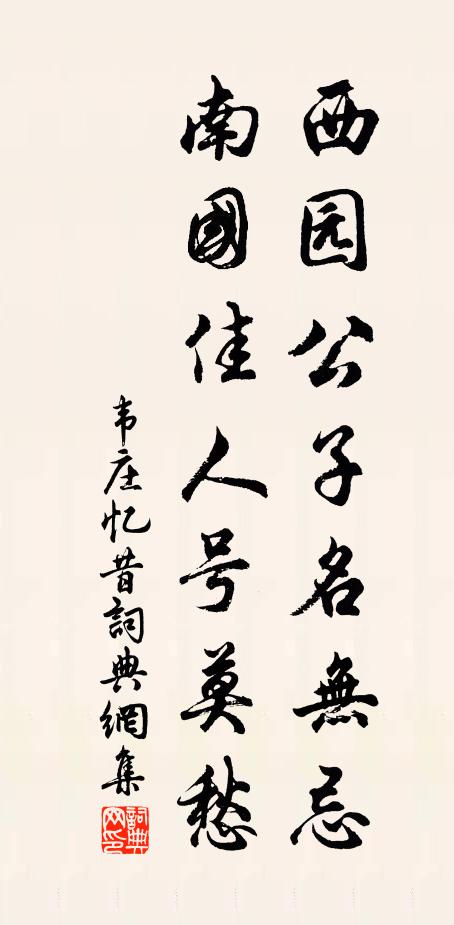 西园公子名無忌
南國佳人号莫愁
韦庄忆昔詞典網集
詞典网印